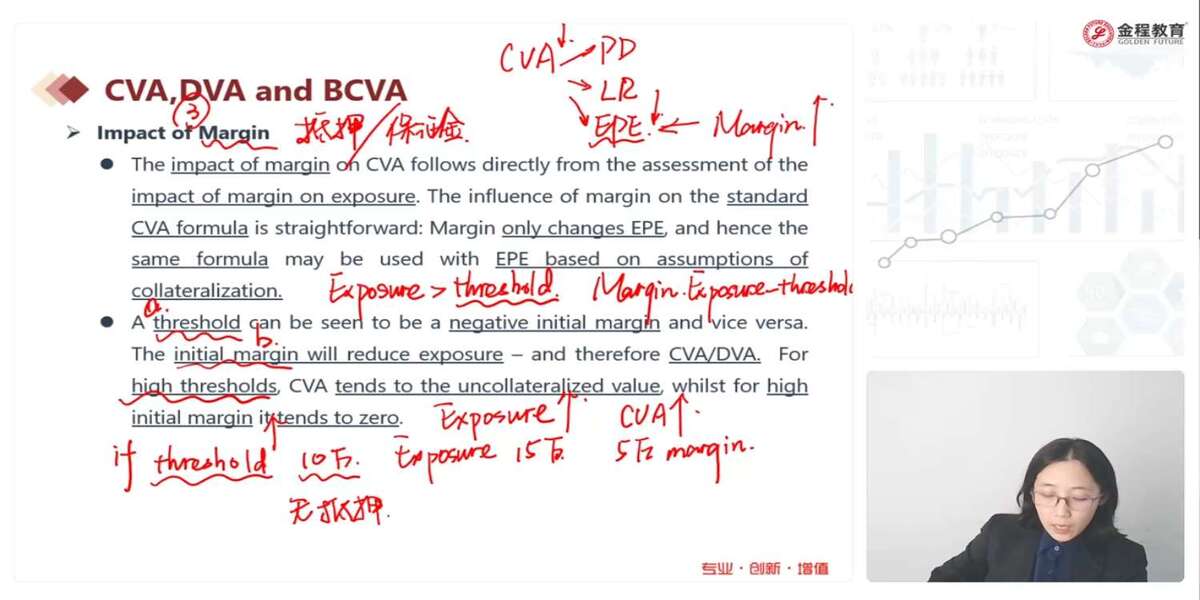 金程教育
GOLDEN FUTURE
CVA, DVA and BCVA
CVA↓ → PD
→ LR
→ EPE↓ ← Margin↑
③
➢ Impact of Margin 抵押/保证金
● The impact of margin on CVA follows directly from the assessment of the
impact of margin on exposure. The influence of margin on the standard
CVA formula is straightforward: Margin only changes EPE, and hence the
same formula may be used with EPE based on assumptions of
collateralization.
Exposure > threshold. Margin. Exposure-threshold
a.
● A threshold can be seen to be a negative initial margin and vice versa.
b.
The initial margin will reduce exposure – and therefore CVA/DVA. For
high thresholds, CVA tends to the uncollateralized value, whilst for high
initial margin it tends to zero.
Exposure↑ CVA↑
if threshold↑ 10万. Exposure 15万. 5万 margin.
无抵押.
专业·创新·增值